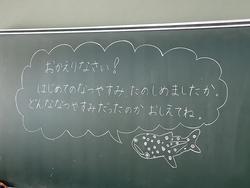 おかえりなさい!
はじめてのなつやすみ たのしめましたか。
どんななつやすみだったのか おしえてね。